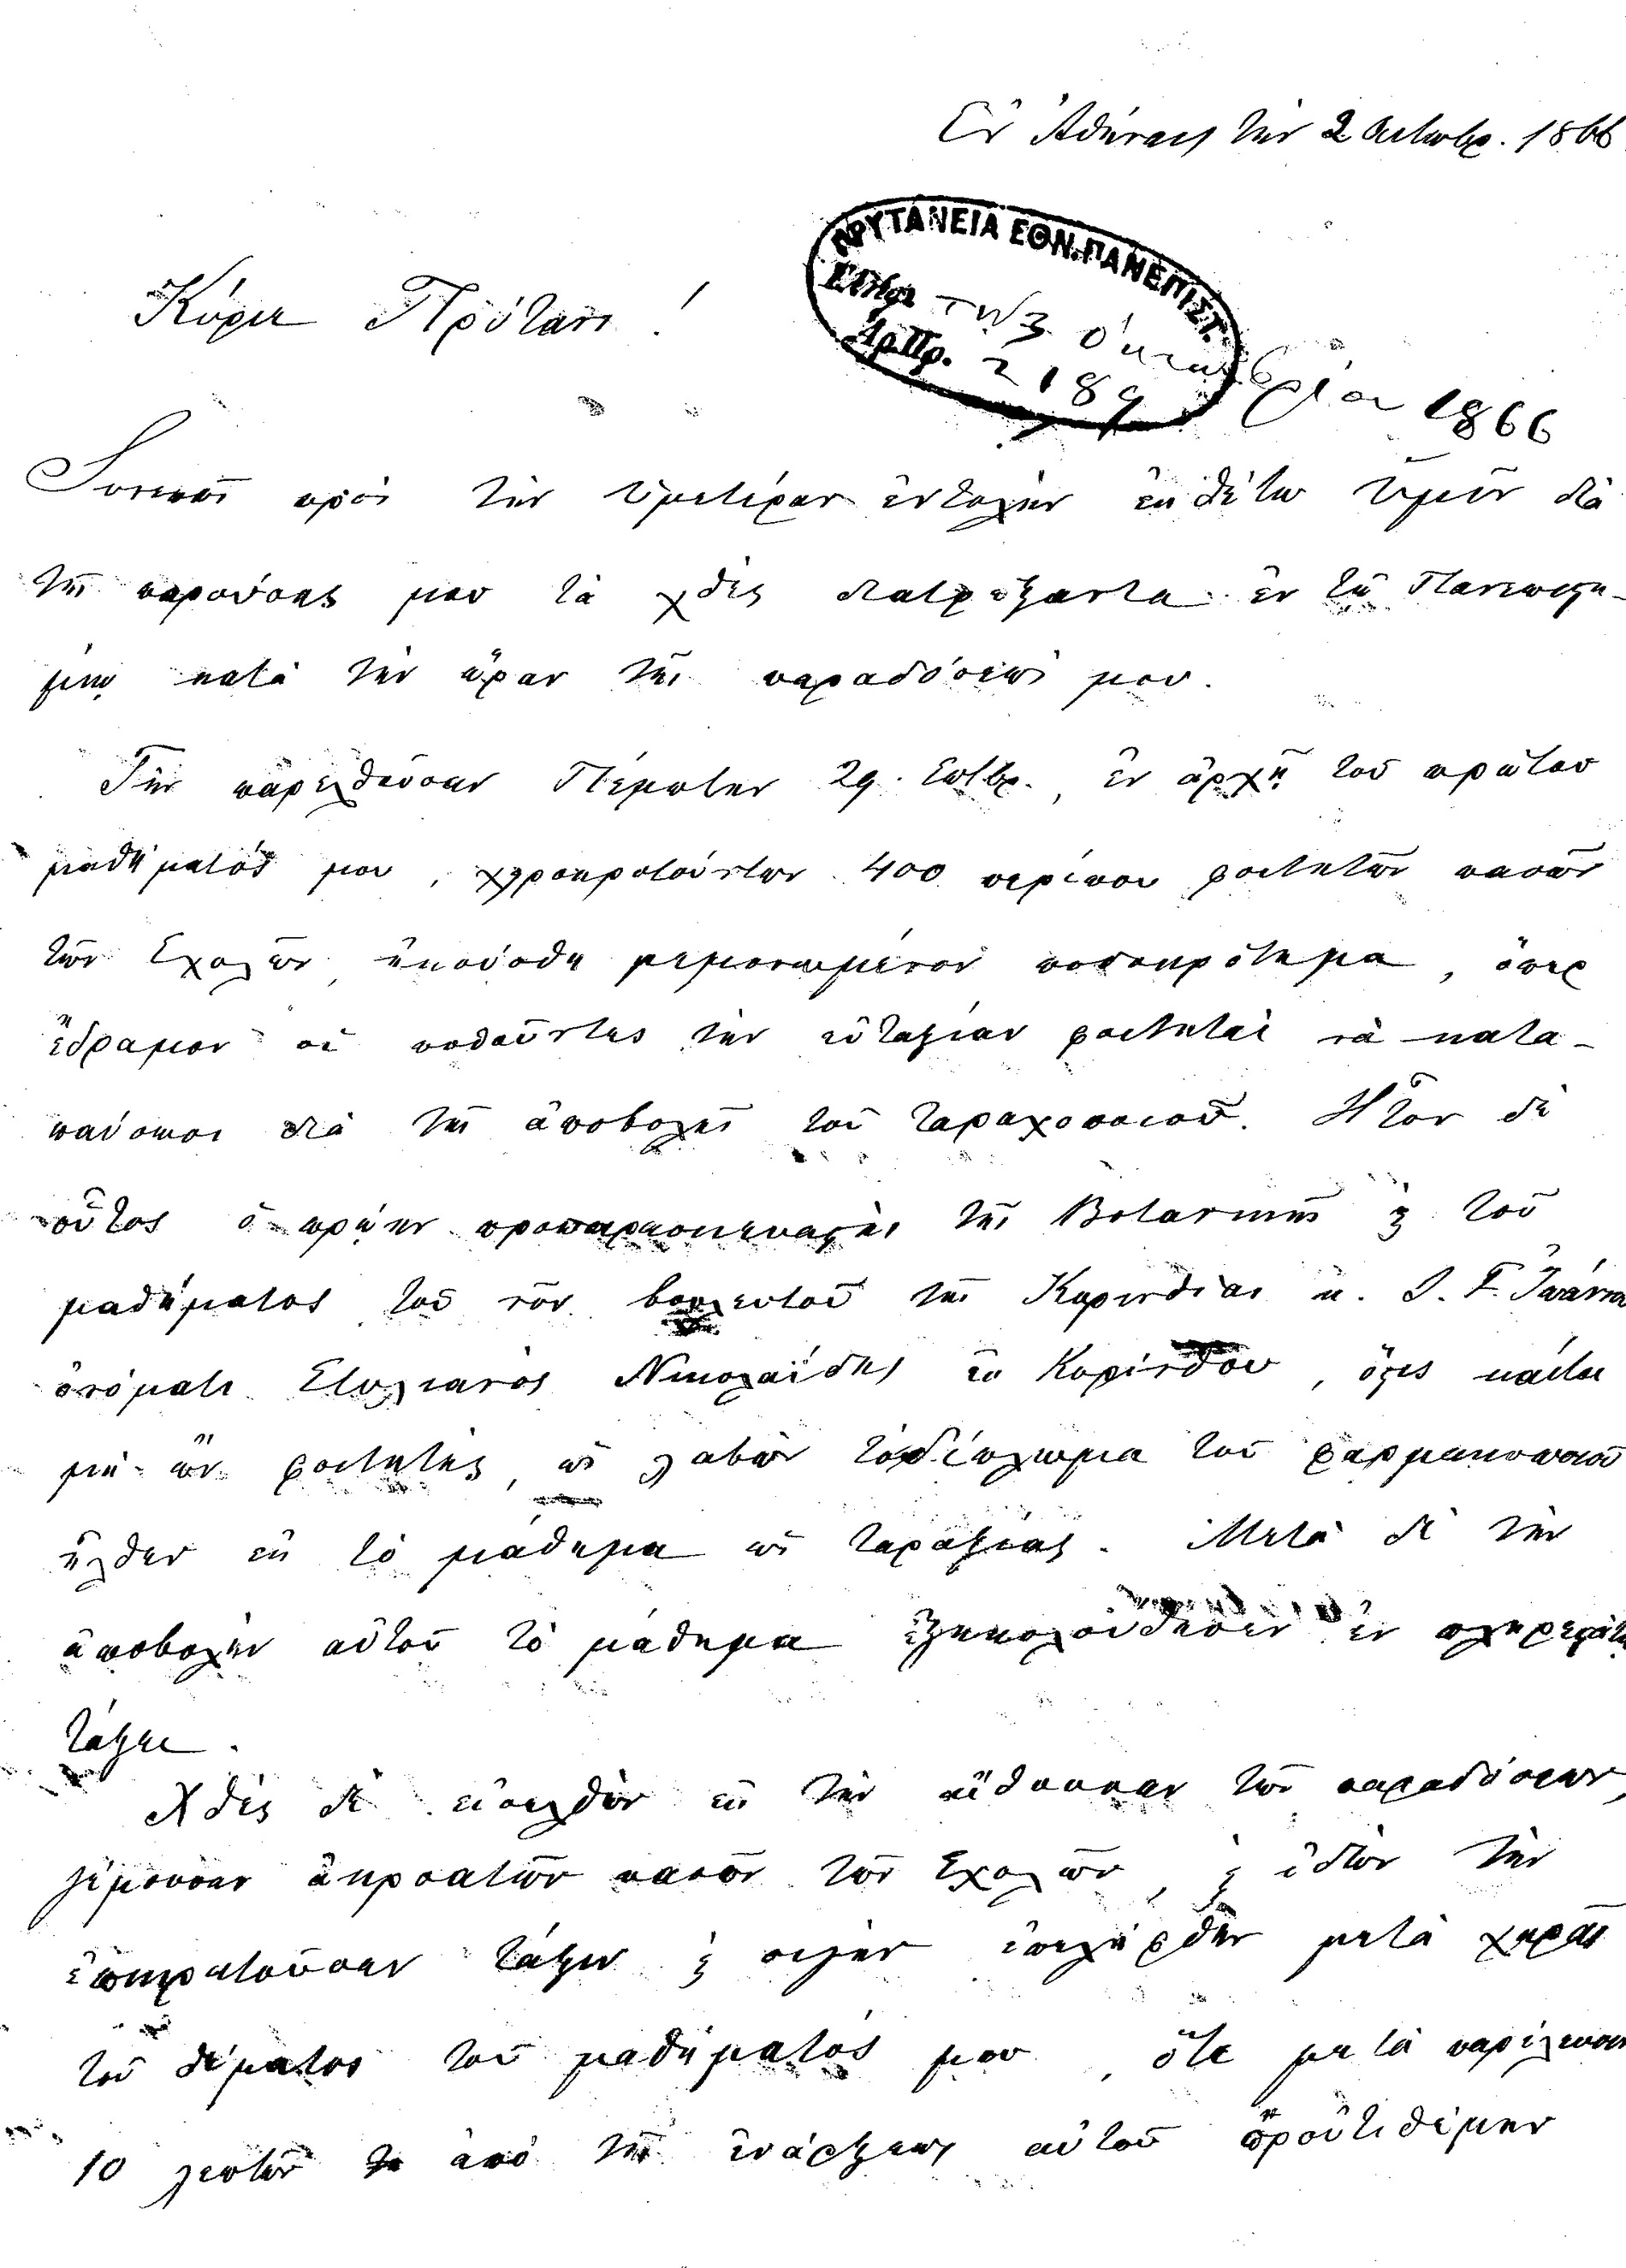 Ἐν Ἀθήναις τὴν 2 Ὀκτωβρ. 1866
ΠΡΥΤΑΝΕΙΑ ΕΘΝ. ΠΑΝΕΠΙΣΤ.
Ἐλήφ. τῇ 3 Ὀκτωβρίου 1866
Ἀρ.Πρ. 2189
Κύριε Πρύτανι!
Συνεπῶς πρὸς τὴν ὑμετέραν ἐντολὴν ἐκθέτω ὑμῖν διὰ
τῆς παρούσης μου τὰ χθὲς διατρέξαντα ἐν τῷ Πανεπιστη-
μίῳ κατὰ τὴν ὥραν τῆς παραδόσεώς μου.
Τὴν παρελθοῦσαν Πέμπτην 29 Σπτβρ., ἐν ἀρχῇ τοῦ πρώτου
μαθήματός μου, χειροκροτούντων 400 περίπου φοιτητῶν πασῶν
τῶν Σχολῶν, ἠκούσθη μεμονωμένον ποδοκρότημα, ὅπερ
ἔδραμον οἱ ποθοῦντες τὴν εὐταξίαν φοιτηταὶ νὰ κατα-
παύσωσι διὰ τῆς ἀποβολῆς τοῦ ταραχοποιοῦ. Ἦτον δὲ
οὗτος ὁ πρώην προπαρασκευαστὴς τῆς Βοτανικῆς ϗ τοῦ
μαθήματος τοῦ νῦν βουλευτοῦ τῆς Κορινθίας κ.
ὀνόματι Στυλιανὸς Νικολαΐδης ἐκ Κορίνθου, ὅστις καίτοι
μὴ ὢν φοιτητὴς, ὡς λαβὼν τὸ δίπλωμα τοῦ φαρμακοποιοῦ
ἦλθεν εἰς τὸ μάθημα ὡς ταραξίας. Μετὰ δὲ τὴν
ἀποβολὴν αὐτοῦ τὸ μάθημα ἐξηκολούθησεν ἐν πληρεστάτῃ
τάξει.
Χθὲς δὲ εἰσελθὼν εἰς τὴν αἴθουσαν τῶν παραδόσεων,
γέμουσαν ἀκροατῶν πασῶν τῶν Σχολῶν, ϗ ἰδὼν τὴν
ἐπικρατοῦσαν τάξιν ϗ σιγὴν ἐπελήφθην μετὰ χαρᾶς
τοῦ θέματος τοῦ μαθήματός μου, ὅτε μετὰ παρέλευσιν
10 λεπτῶν ἀπὸ τῆς ἐνάρξεως αὐτοῦ προὐτιθέμην